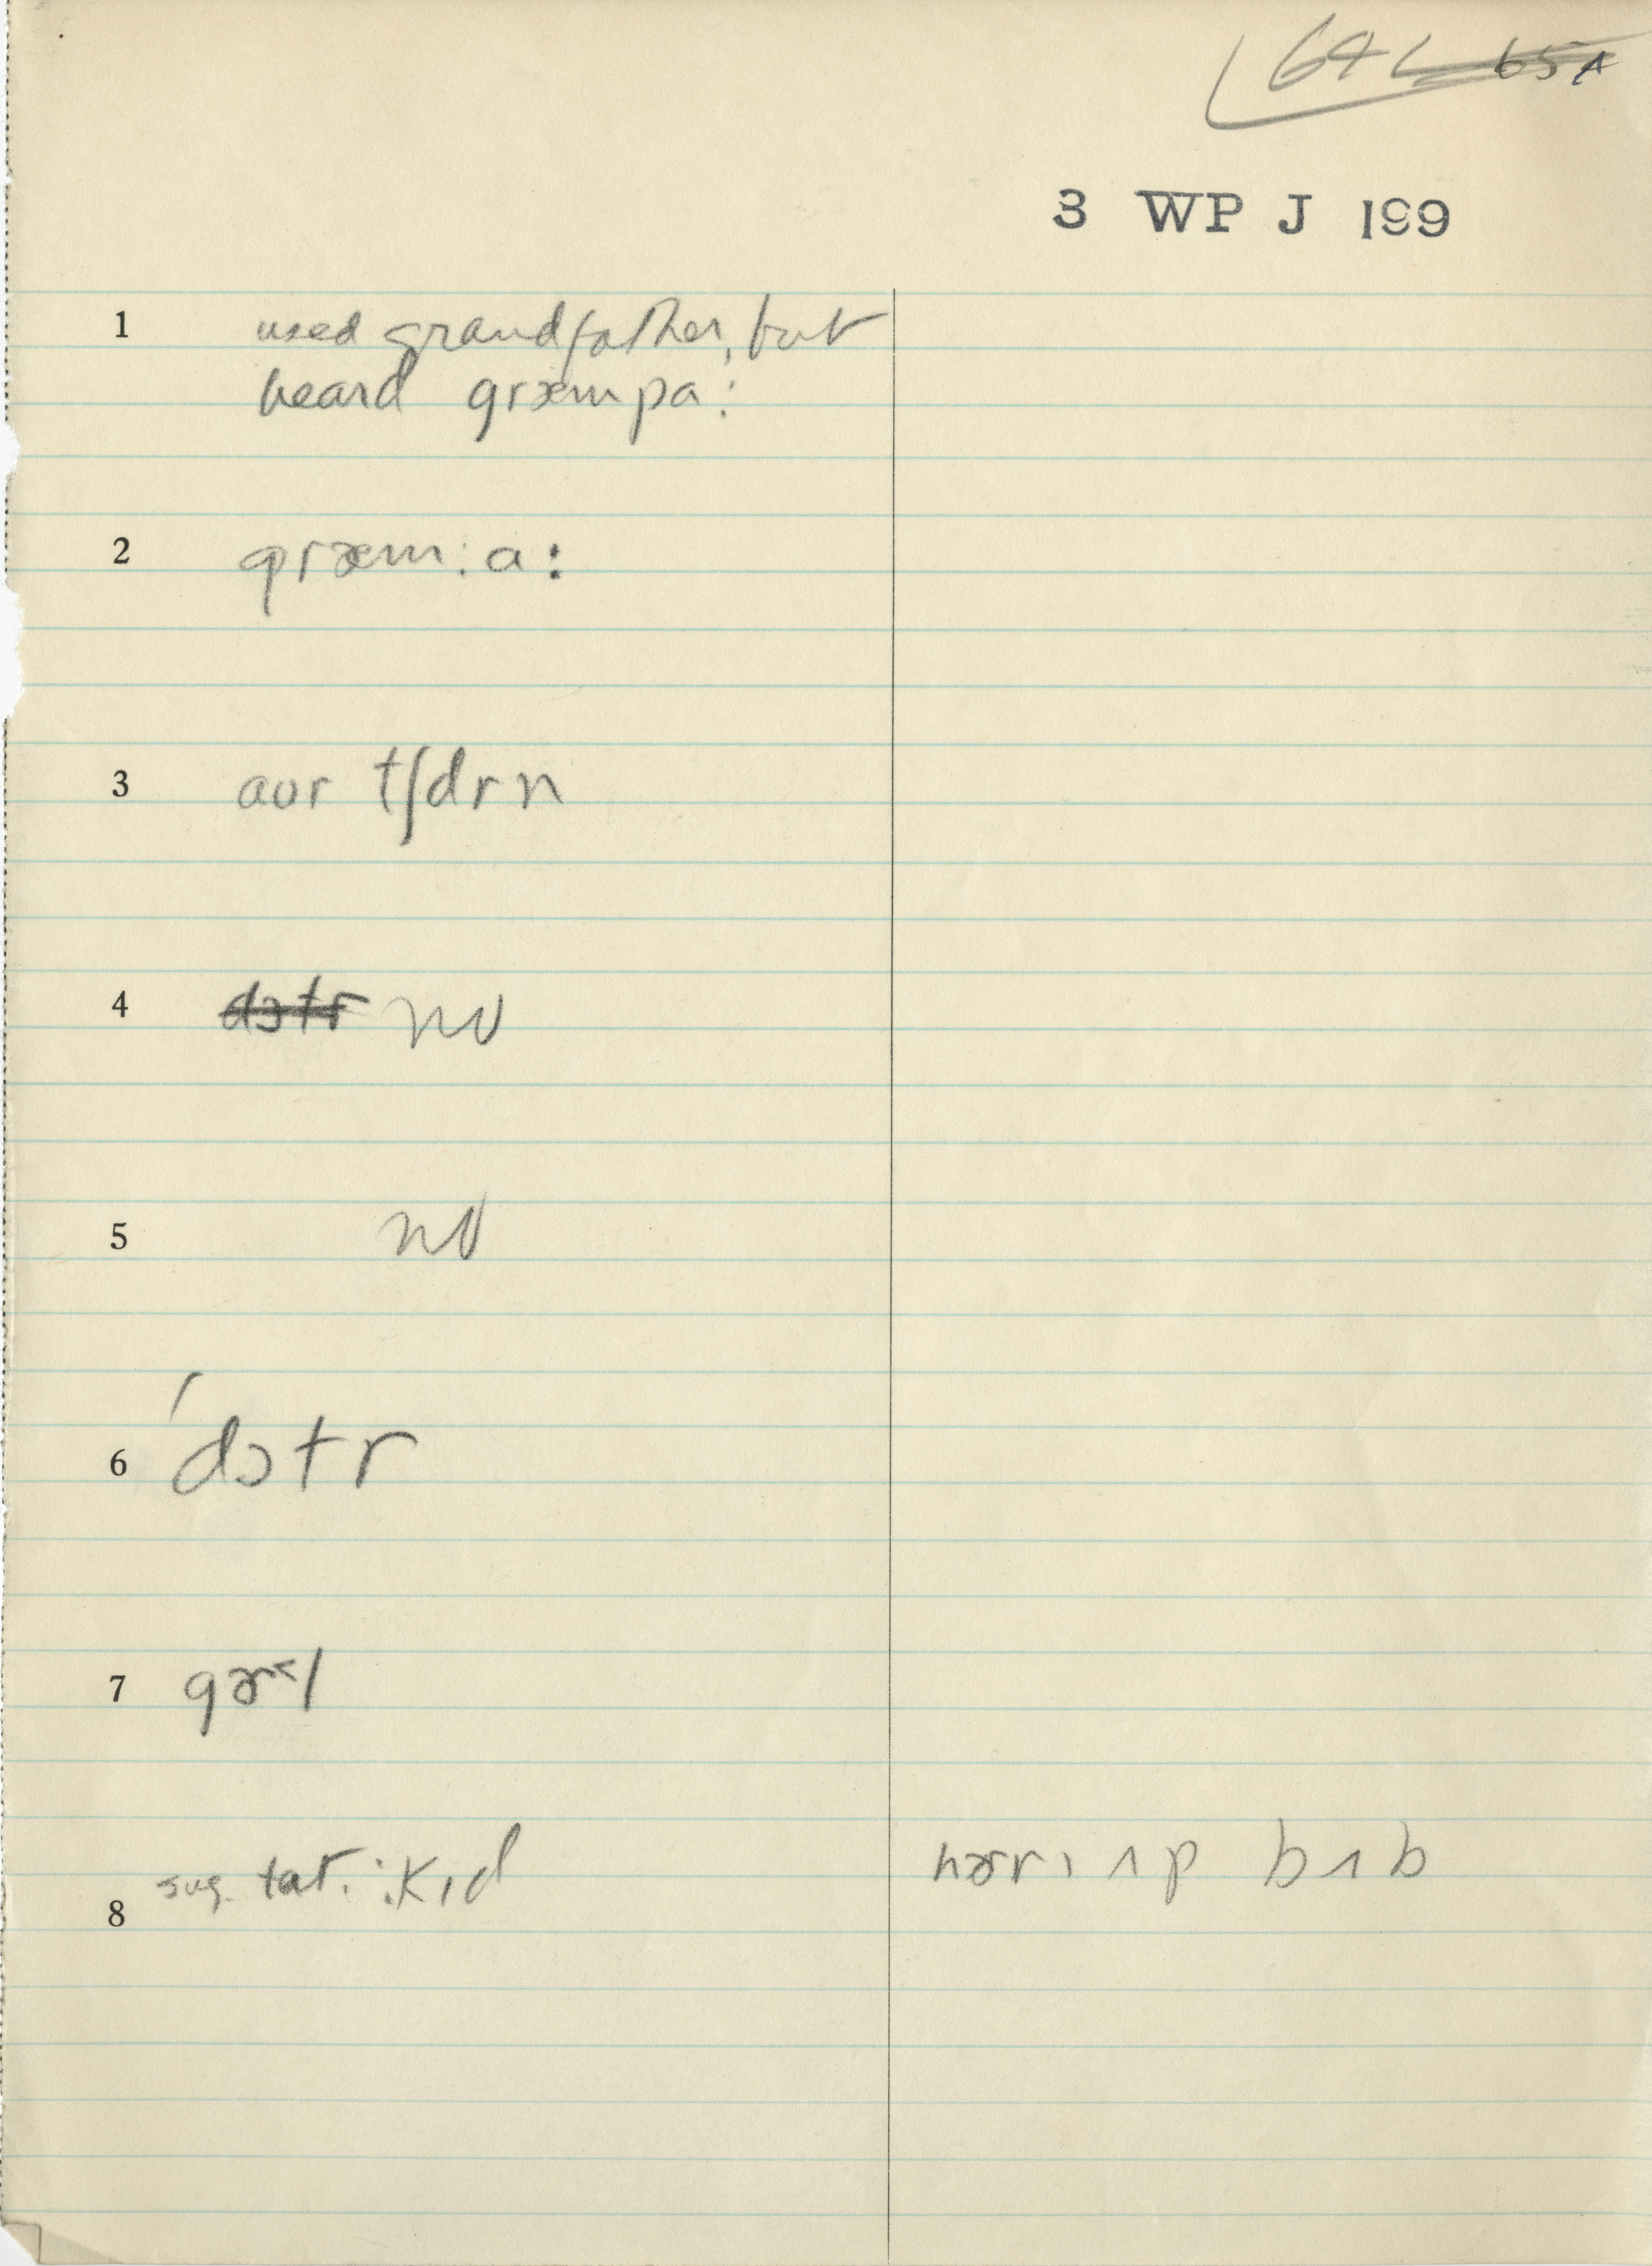 64 L 65A
3 WP J 199
1 used grandfather, but
heard græmpa:
2 græm:a:
3 aʊr tʃɪdrn
4 dɔtr no
5 no
6 'dɔtr
7 gɚ˞l
8 sug. tat. : kɪd hɚrɪ ʌp bʌb